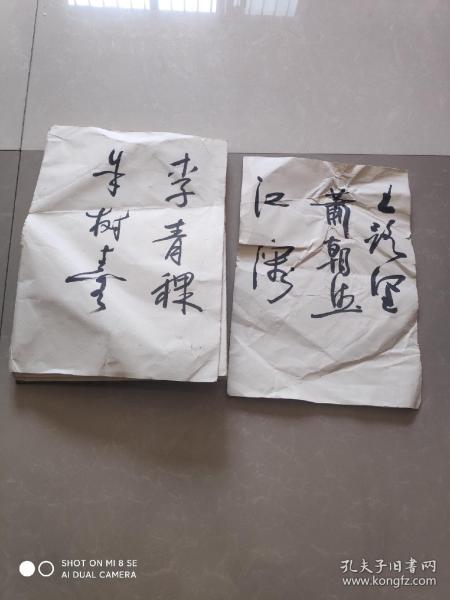 李青稞
朱树喜
萧朝然
江濤
SHOT ON MI 8 SE
AI DUAL CAMERA
孔夫子旧书网
www.kongfz.com